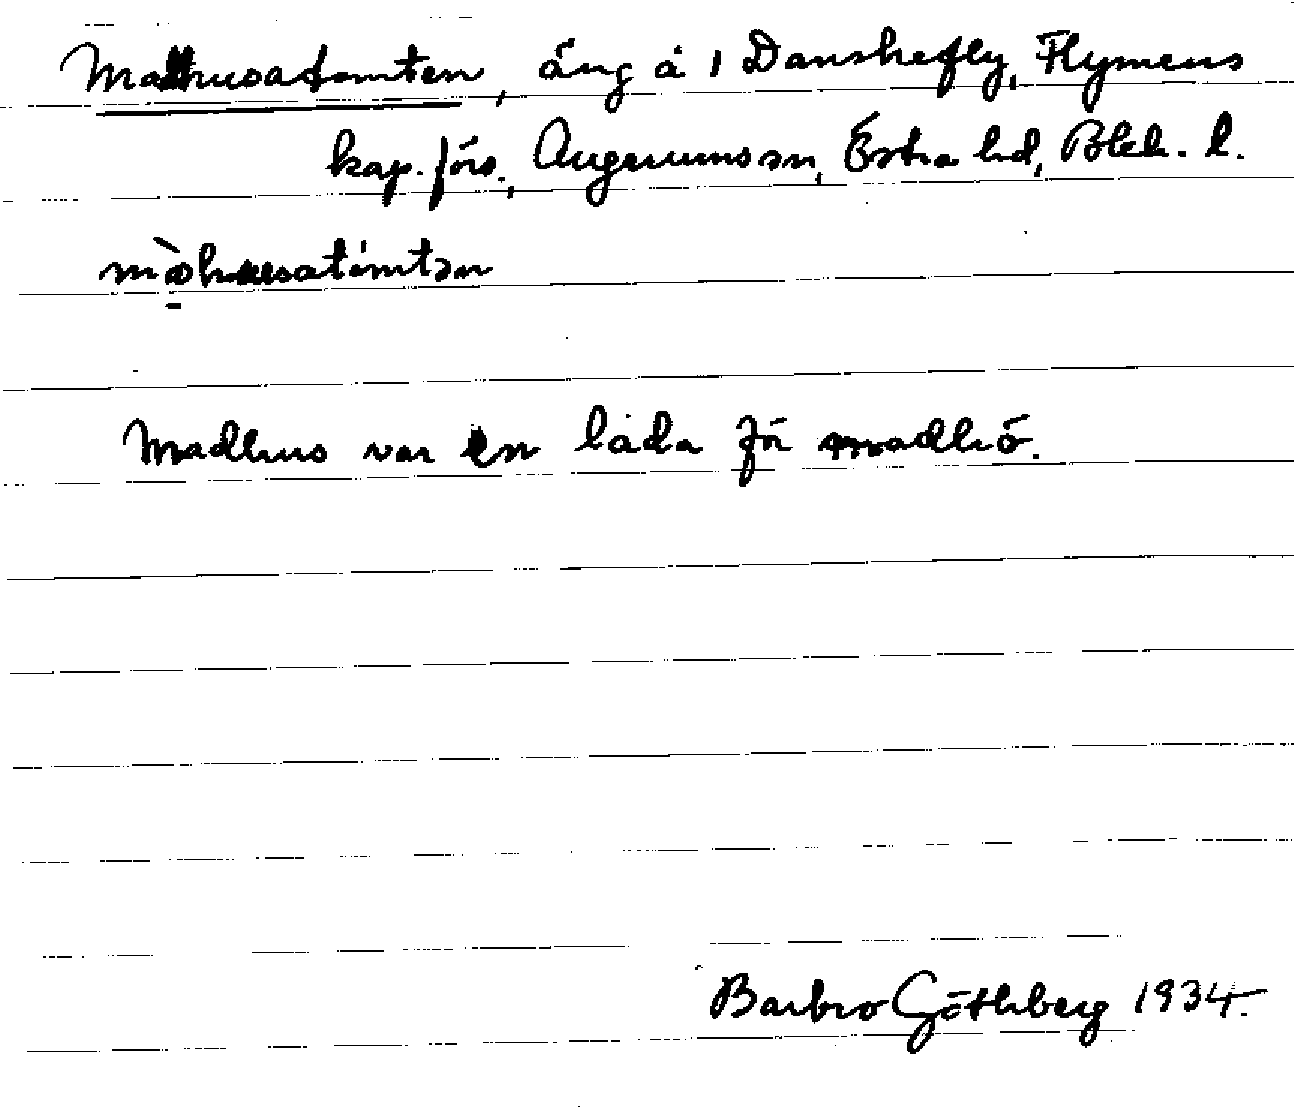 Mathusatomten, äng å 1 Danskefly, Flymens
kap. förs., Augerums sn, Östra hd, Blek. l.
Madhus var en låda för madhö.
Barbro Göthberg 1934.